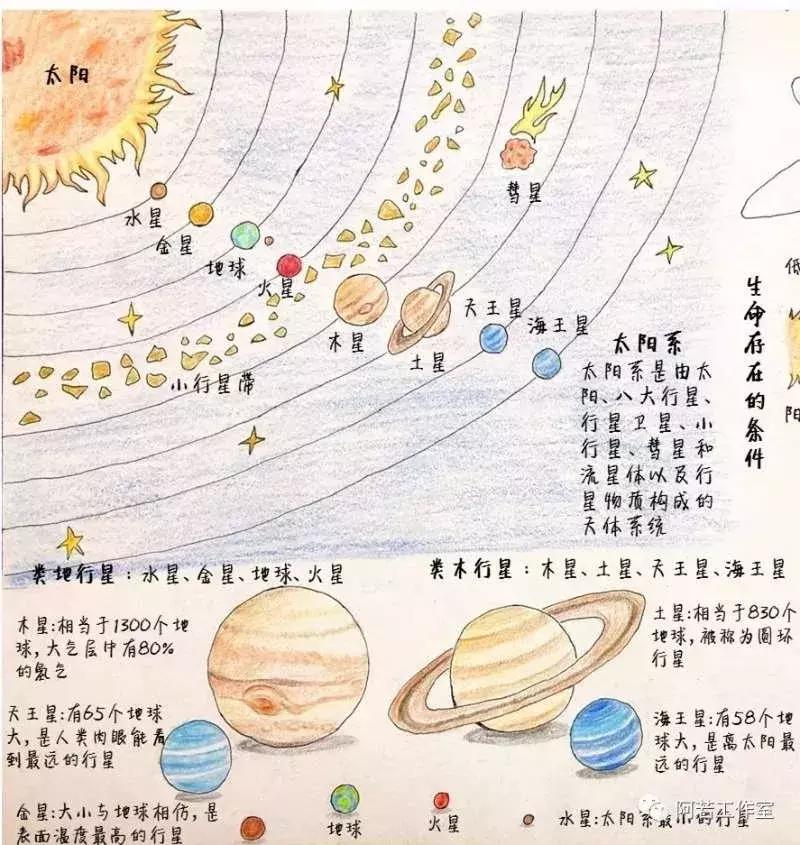 太阳
水星
金星
地球
火星
小行星带
木星
土星
天王星
海王星
彗星
太阳系
太阳系是由太
阳、八大行星、
行星卫星、小
行星、彗星和
流星体以及行
星物质构成的
天体系统
生命存在的条件
低
阳
类地行星：水星、金星、地球、火星
类木行星：木星、土星、天王星、海王星
木星:相当于1300个地
球,大气层中有80%
的氢气
土星:相当于830个
地球,被称为圆环
行星
天王星:有65个地球
大,是人类肉眼能看
到最远的行星
海王星:有58个地
球大,是离太阳最
远的行星
金星:大小与地球相仿,是
表面温度最高的行星
地球
火星
水星:太阳系最小的行星
阿若工作室